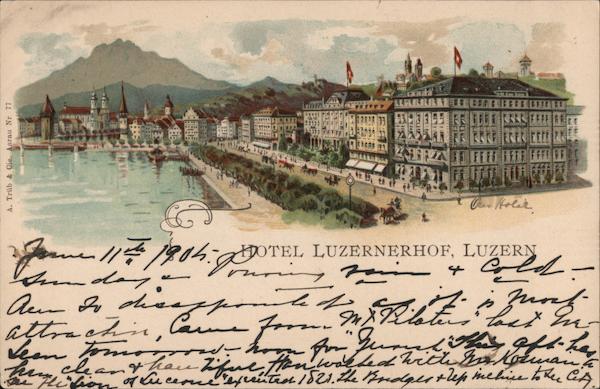 A. Trüb & Cie. Aarau Nr. 77
Our Hotel.
HOTEL LUZERNERHOF, LUZERN
June 11th 1905.
Sunday a Pouring rain & cold -
Am so disappointed as it is most
attractive, Came from Mt Pilatus last
tomorrow noon for This aft. has
been clear & beautiful Have walked with
Lion of Lucerne executed 1821. The Bridges & to the City